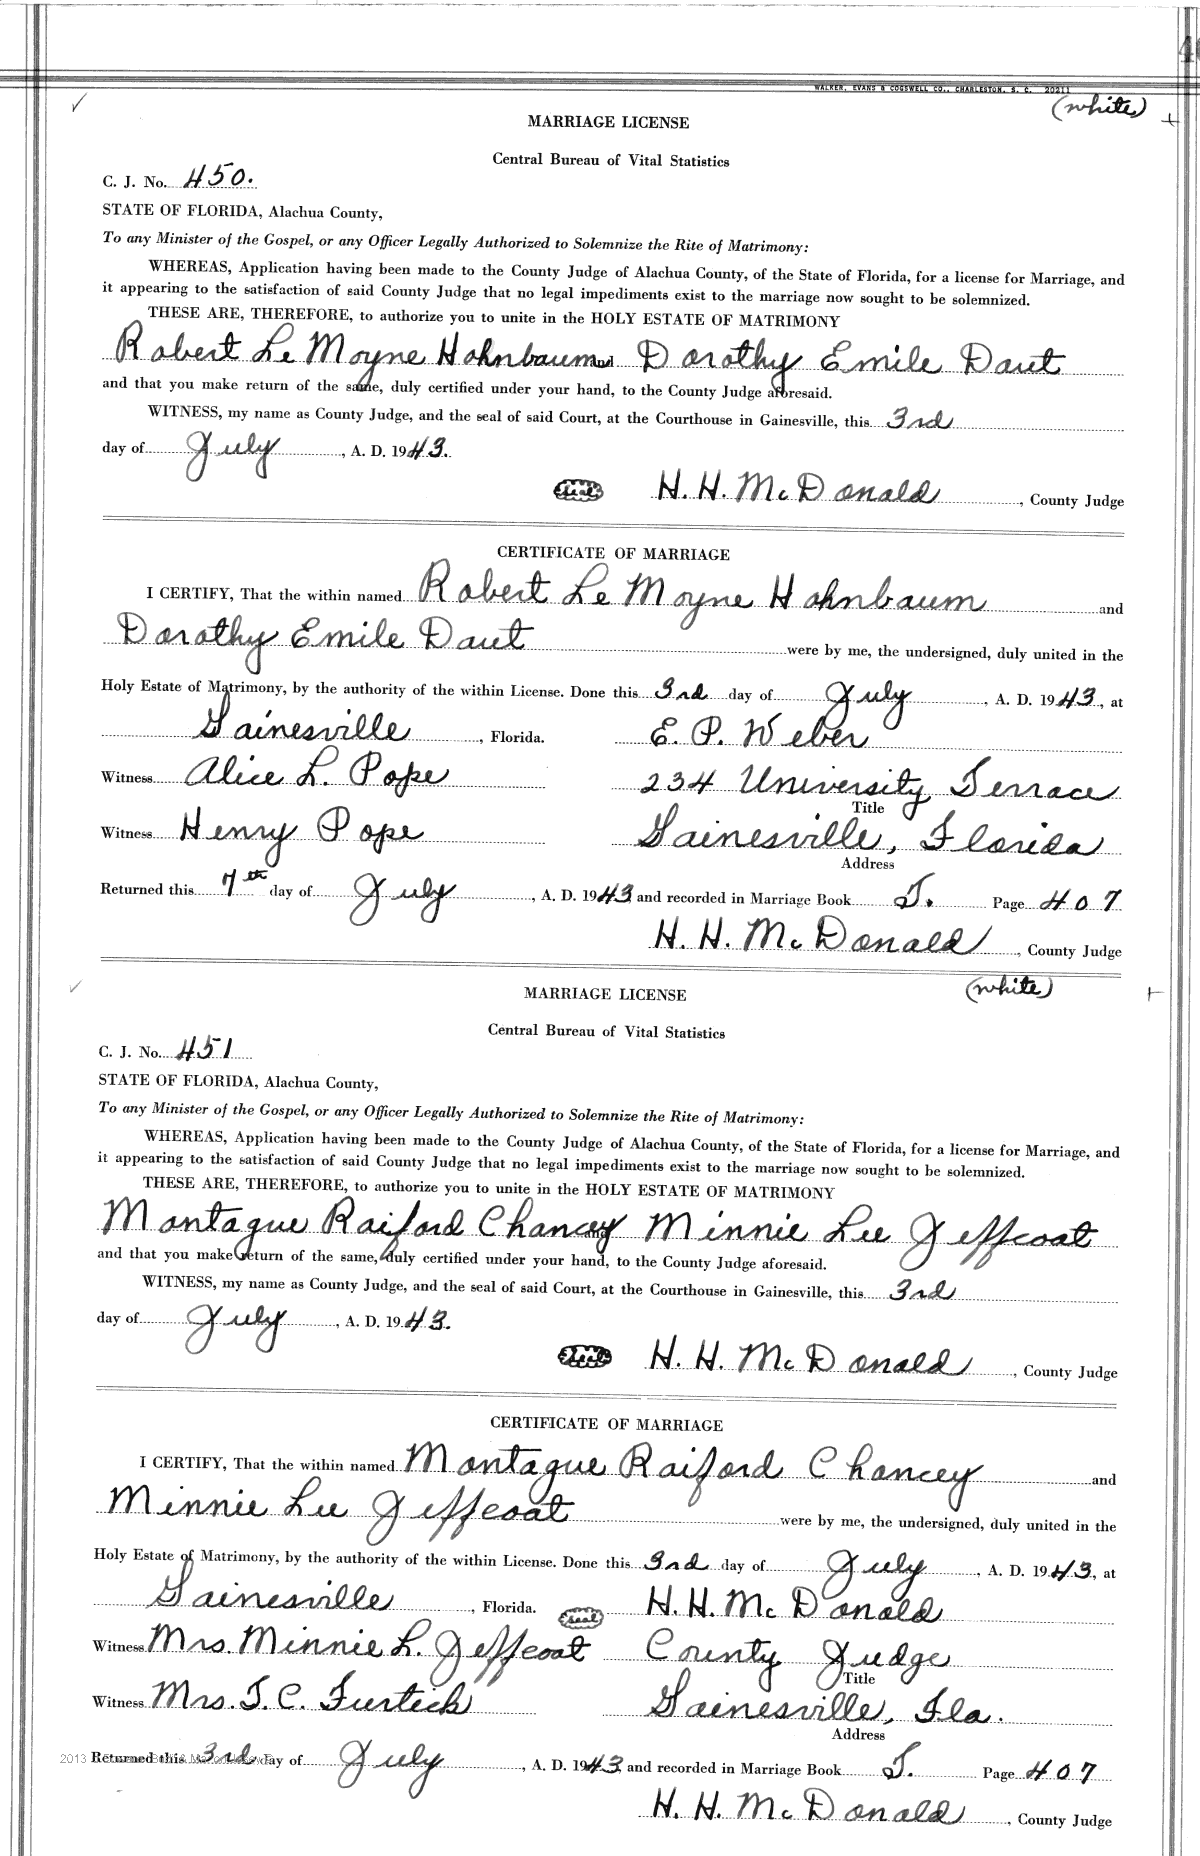 WALKER, EVANS & COGSWELL CO., CHARLESTON, S. C. 20211
(white)
MARRIAGE LICENSE
Central Bureau of Vital Statistics
C. J. No. 450.
STATE OF FLORIDA, Alachua County,
To any Minister of the Gospel, or any Officer Legally Authorized to Solemnize the Rite of Matrimony:
WHEREAS, Application having been made to the County Judge of Alachua County, of the State of Florida, for a license for Marriage, and
it appearing to the satisfaction of said County Judge that no legal impediments exist to the marriage now sought to be solemnized.
THESE ARE, THEREFORE, to authorize you to unite in the HOLY ESTATE OF MATRIMONY
Robert Le Moyne Hohnbaum and Dorothy Emile Daut
and that you make return of the same, duly certified under your hand, to the County Judge aforesaid.
WITNESS, my name as County Judge, and the seal of said Court, at the Courthouse in Gainesville, this 3rd
day of July, A. D. 1943.
seal H. H. McDonald, County Judge
CERTIFICATE OF MARRIAGE
I CERTIFY, That the within named Robert Le Moyne Hohnbaum and
Dorothy Emile Daut were by me, the undersigned, duly united in the
Holy Estate of Matrimony, by the authority of the within License. Done this 3rd day of July, A. D. 1943, at
Gainesville, Florida. E. P. Weber
Witness Alice L. Pope 234 University Terrace
Title
Witness Henry Pope Gainesville, Florida
Address
Returned this 7th day of July, A. D. 1943 and recorded in Marriage Book T. Page 407
H. H. McDonald, County Judge
(white)
MARRIAGE LICENSE
Central Bureau of Vital Statistics
C. J. No. 451
STATE OF FLORIDA, Alachua County,
To any Minister of the Gospel, or any Officer Legally Authorized to Solemnize the Rite of Matrimony:
WHEREAS, Application having been made to the County Judge of Alachua County, of the State of Florida, for a license for Marriage, and
it appearing to the satisfaction of said County Judge that no legal impediments exist to the marriage now sought to be solemnized.
THESE ARE, THEREFORE, to authorize you to unite in the HOLY ESTATE OF MATRIMONY
Montague Raiford Chancey and Minnie Lee Jeffcoat
and that you make return of the same, duly certified under your hand, to the County Judge aforesaid.
WITNESS, my name as County Judge, and the seal of said Court, at the Courthouse in Gainesville, this 3rd
day of July, A. D. 1943.
seal H. H. McDonald, County Judge
CERTIFICATE OF MARRIAGE
I CERTIFY, That the within named Montague Raiford Chancey and
Minnie Lee Jeffcoat were by me, the undersigned, duly united in the
Holy Estate of Matrimony, by the authority of the within License. Done this 3rd day of July, A. D. 1943, at
Gainesville, Florida. seal H. H. McDonald
Witness Mrs. Minnie L. Jeffcoat County Judge
Title
Witness Mrs. T. C. Furtick Gainesville, Fla.
Address
Returned this 3rd day of July, A. D. 1943 and recorded in Marriage Book T. Page 407
2013
H. H. McDonald, County Judge